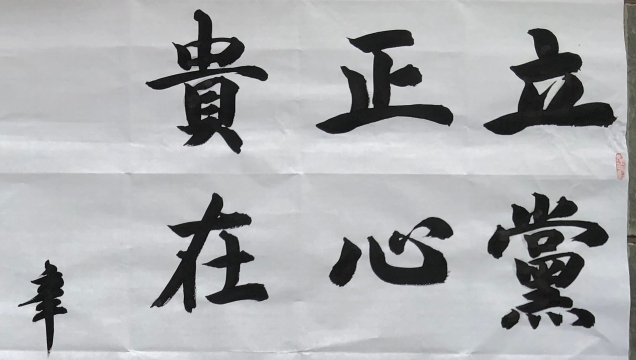 立黨
正心
貴在